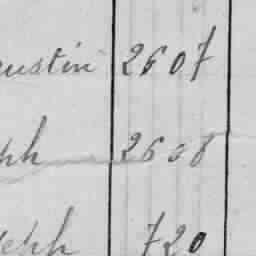 ustin 2607
ph 2608
seph 720